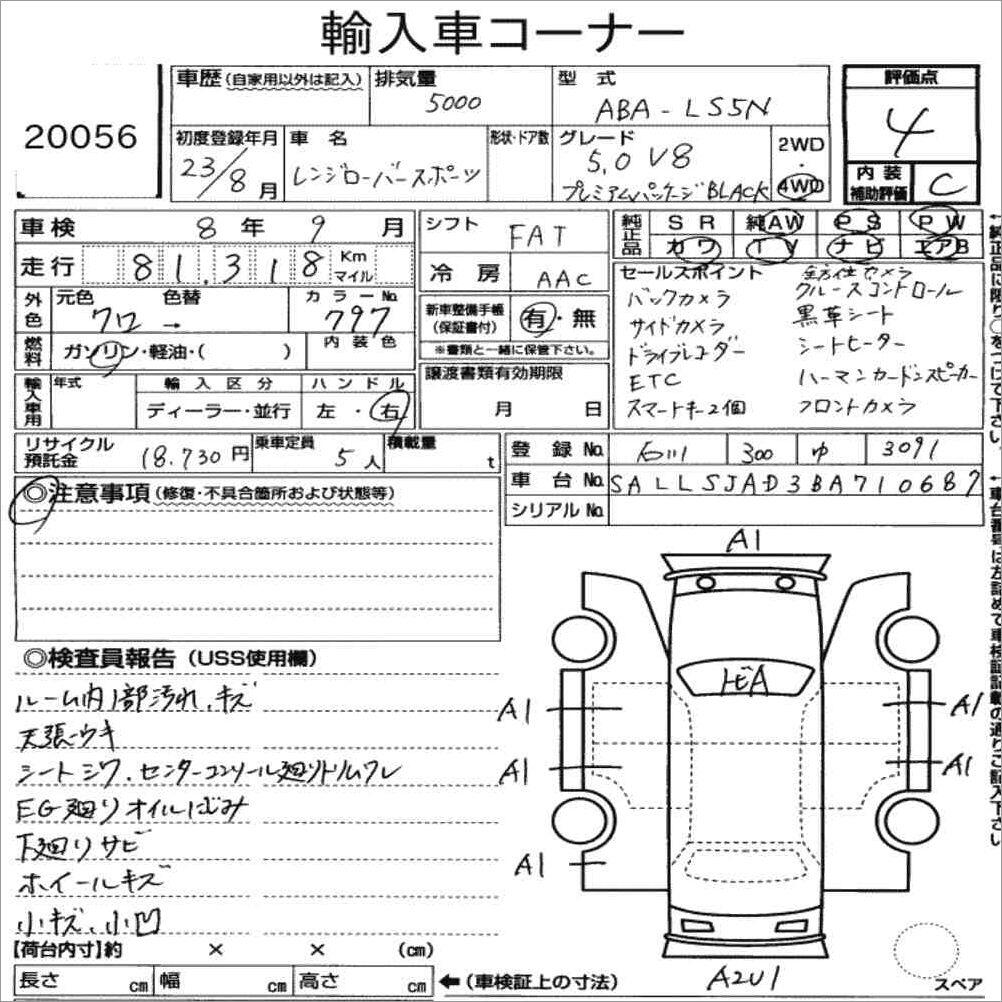 輸入車コーナー
20056
車歴(自家用以外は記入)
排気量
5000
型 式
ABA-LS5N
評価点
4
初度登録年月
23/8月
車 名
レンジローバースポーツ
形状・ドア数
グレード
5.0 V8
プレミアムパッケージBLACK
2WD
・
4WD
内装
補助評価
C
車検 8年 9月
走行 81,318 Km
マイル
シフト FAT
冷房 AAC
純正品
SR 純AW PS PW
カワ TV ナビ エアB
外色
元色 色替 カラーNo.
クロ → 797
新車整備手帳
(保証書付)
有・無
※書類と一緒に保管下さい。
燃料
ガソリン・軽油・( )
内装色
セールスポイント
バックカメラ
サイドカメラ
ドライブレコーダー
ETC
スマートキー2個
全方位カメラ
クルーズコントロール
黒革シート
シートヒーター
ハーマンカードンスピーカー
フロントカメラ
輸入車用
年式
輸入区分
ディーラー・並行
ハンドル
左・右
譲渡書類有効期限
月 日
リサイクル
預託金
18.730円
乗車定員
5人
積載量
t
登録No. 石川 300 ゆ 3091
車台No. SALLSJAD3BA710687
シリアルNo.
◎注意事項(修復・不具合箇所および状態等)
◎検査員報告(USS使用欄)
ルーム内1部汚れ、キズ
天張ウキ
シートシワ、センターコンソール廻りトリムワレ
EG廻りオイルにじみ
下廻りサビ
ホイールキズ
小キズ、小凹
A1
A1
A1
A1
A1
A1
A2U1
スペア
【荷台内寸】約 × × (cm)
長さ cm 幅 cm 高さ cm
←(車検証上の寸法)
←純正品に限り○をつけて下さい。
←車台番号は左詰めで車検証記載の通りご記入下さい